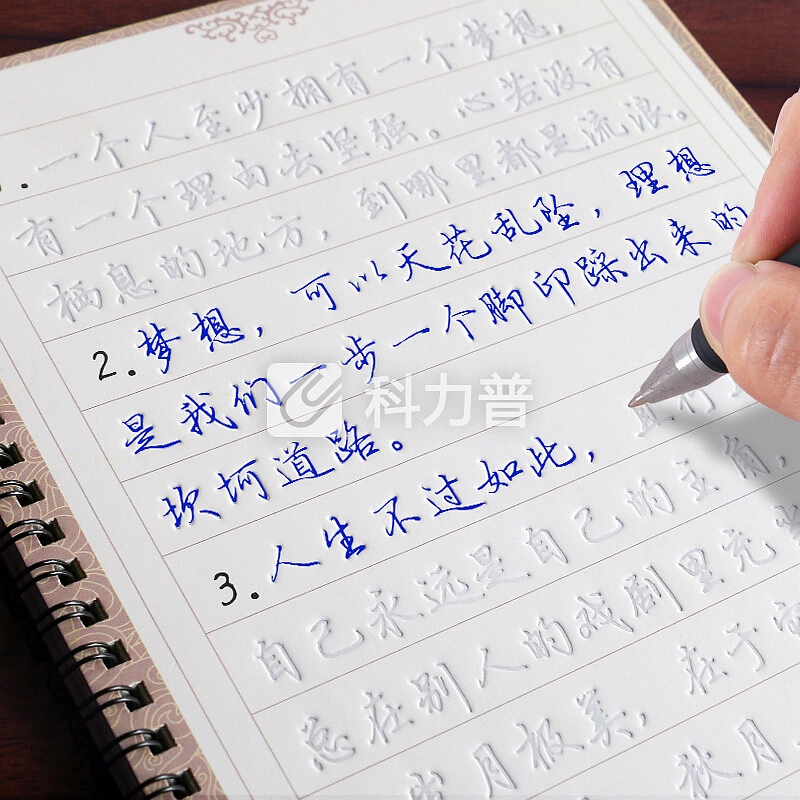 一个人至少拥有一个梦想，
有一个理由去坚强。心若没有
栖息的地方，到哪里都是流浪。
2. 梦想，可以天花乱坠，理想
是我们一步一个脚印踩出来的
坎坷道路。
3. 人生不过如此，且行且
自己永远是自己的主角，
总在别人的戏剧里充当
岁月极美，在于它
秋月
科力普